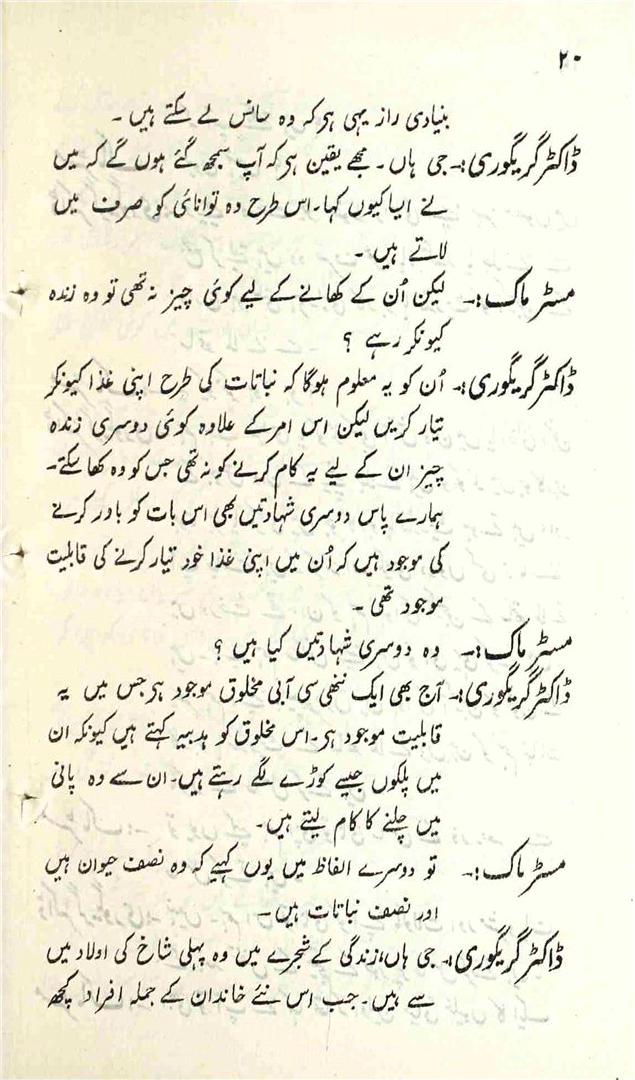 ۲۰
بنیادی راز یہی ہر کہ وہ سانس لے سکتے ہیں ۔
ڈاکٹر گریگوری:۔ جی ہاں ۔ مجھے یقین ہر کہ آپ سمجھ گئے ہوں گے کہ میں
نے ایسا کیوں کہا۔ اس طرح وہ توانائی کو صرف میں
لاتے ہیں ۔
مسٹر ماک:۔ لیکن اُن کے کھانے کے لیے کوئی چیز نہ تھی تو وہ زندہ
کیونکر رہے ؟
ڈاکٹر گریگوری:۔ اُن کو یہ معلوم ہوگا کہ نباتات کی طرح اپنی غذا کیونکر
تیار کریں لیکن اس امر کے علاوہ کوئی دوسری زندہ
چیز ان کے لیے یہ کام کرنے کو نہ تھی جس کو وہ کھا سکتے۔
ہمارے پاس دوسری شہادتیں بھی اس بات کو باور کرنے
کی موجود ہیں کہ اُن میں اپنی غذا خود تیار کرنے کی قابلیت
موجود تھی ۔
مسٹر ماک:۔ وہ دوسری شہادتیں کیا ہیں ؟
ڈاکٹر گریگوری:۔ آج بھی ایک ننھی سی آبی مخلوق موجود ہر جس میں یہ
قابلیت موجود ہر۔ اس مخلوق کو ہدبیہ کہتے ہیں کیونکہ ان
میں پلکوں جیسے کوڑے لگے رہتے ہیں۔ ان سے وہ پانی
میں چلنے کا کام لیتے ہیں۔
مسٹر ماک:۔ تو دوسرے الفاظ میں یوں کہیے کہ وہ نصف حیوان ہیں
اور نصف نباتات ہیں ۔
ڈاکٹر گریگوری:۔ جی ہاں، زندگی کے شجرے میں وہ پہلی شاخ کی اولاد میں
سے ہیں۔ جب اس نئے خاندان کے جملہ افراد کچھ